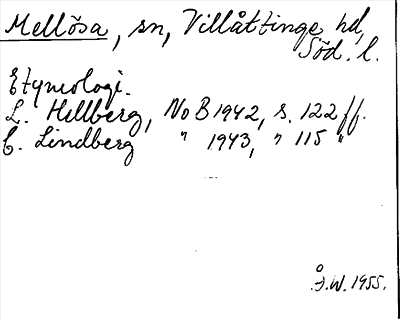 Mellösa, sn, Villåttinge hd,
Söd. l.
Etymologi.
L. Hellberg, NoB 1942, s. 122 ff.
C. Lindberg " 1943, " 115 "
Å.W. 1955.